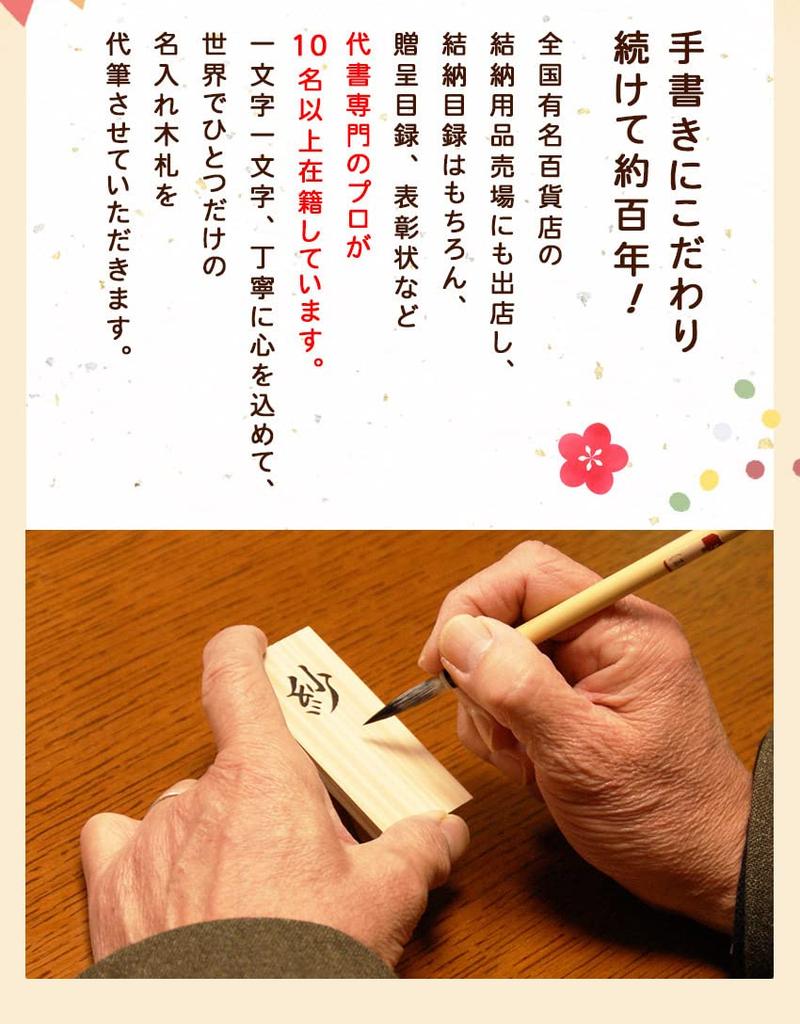 手書きにこだわり
続けて約百年!
全国有名百貨店の
結納用品売場にも出店し、
結納目録はもちろん、
贈呈目録、表彰状など
代書専門のプロが
10名以上在籍しています。
一文字一文字、丁寧に心を込めて、
世界でひとつだけの
名入れ木札を
代筆させていただきます。